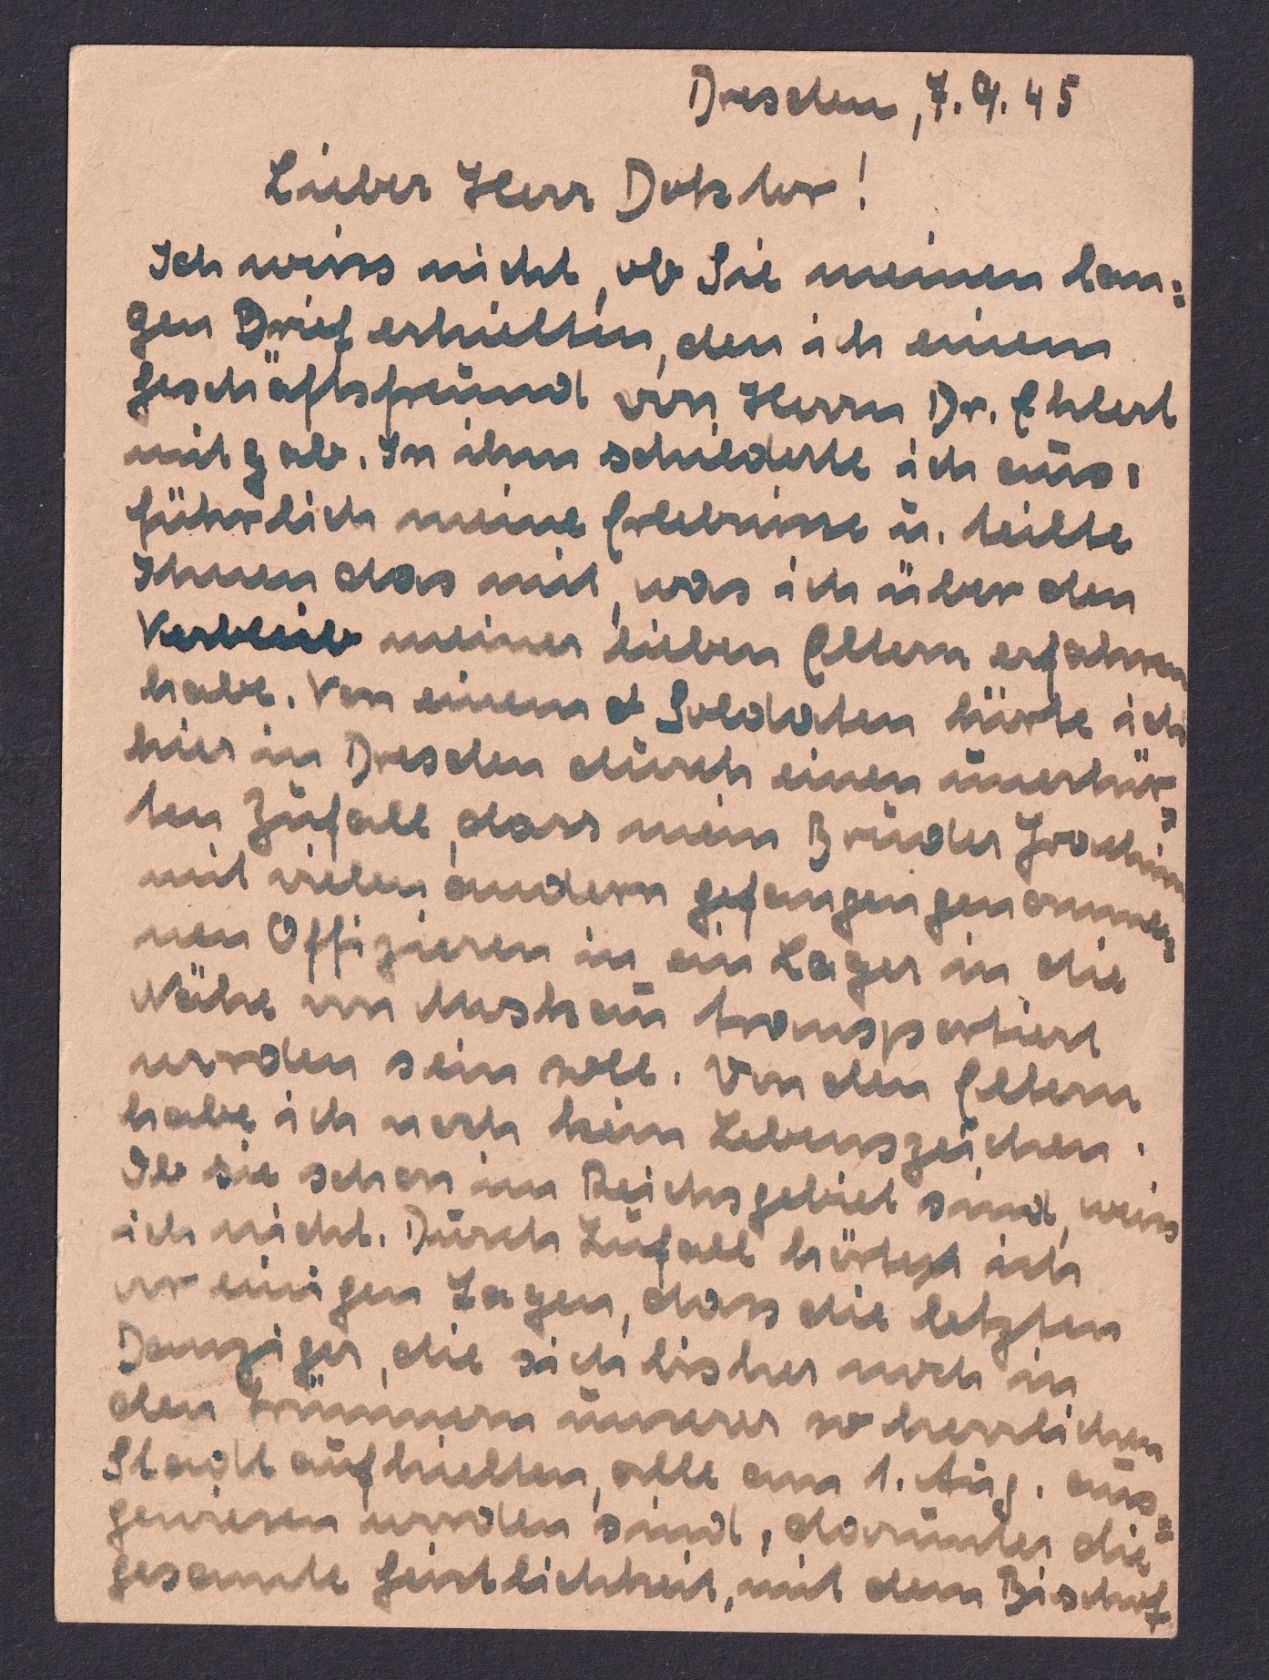 Dresden, 7. 9. 45
Lieber Herr Doktor!
Ich weiss nicht, ob Sie meinen lan=
gen Brief erhielten, den ich einem
Geschäftsfreund von Herrn Dr. Ehlert
mitgab. In ihm schilderte ich aus=
führlich meine Erlebnisse u. teilte
Ihnen das mit, was ich über den
Verbleib meiner lieben Eltern erfahren
habe. Von einem Soldaten hörte ich
hier in Dresden durch einen unerhör=
ten Zufall, dass mein Bruder Joachim
mit vielen andern gefangengenomme=
nen Offizieren in ein Lager in die
Nähe von Moskau transportiert
worden sein soll. Von den Eltern
habe ich noch kein Lebenszeichen.
Ob sie schon im Reichsgebiet sind, weiss
ich nicht. Durch Zufall hörte ich
vor einigen Tagen, dass die letzten
Danziger, die sich bisher noch in
den Trümmern unserer so herrlichen
Stadt aufhielten, alle am 1. Aug. aus=
gewiesen worden sind, darunter die
gesamte Geistlichkeit, mit dem Bischof